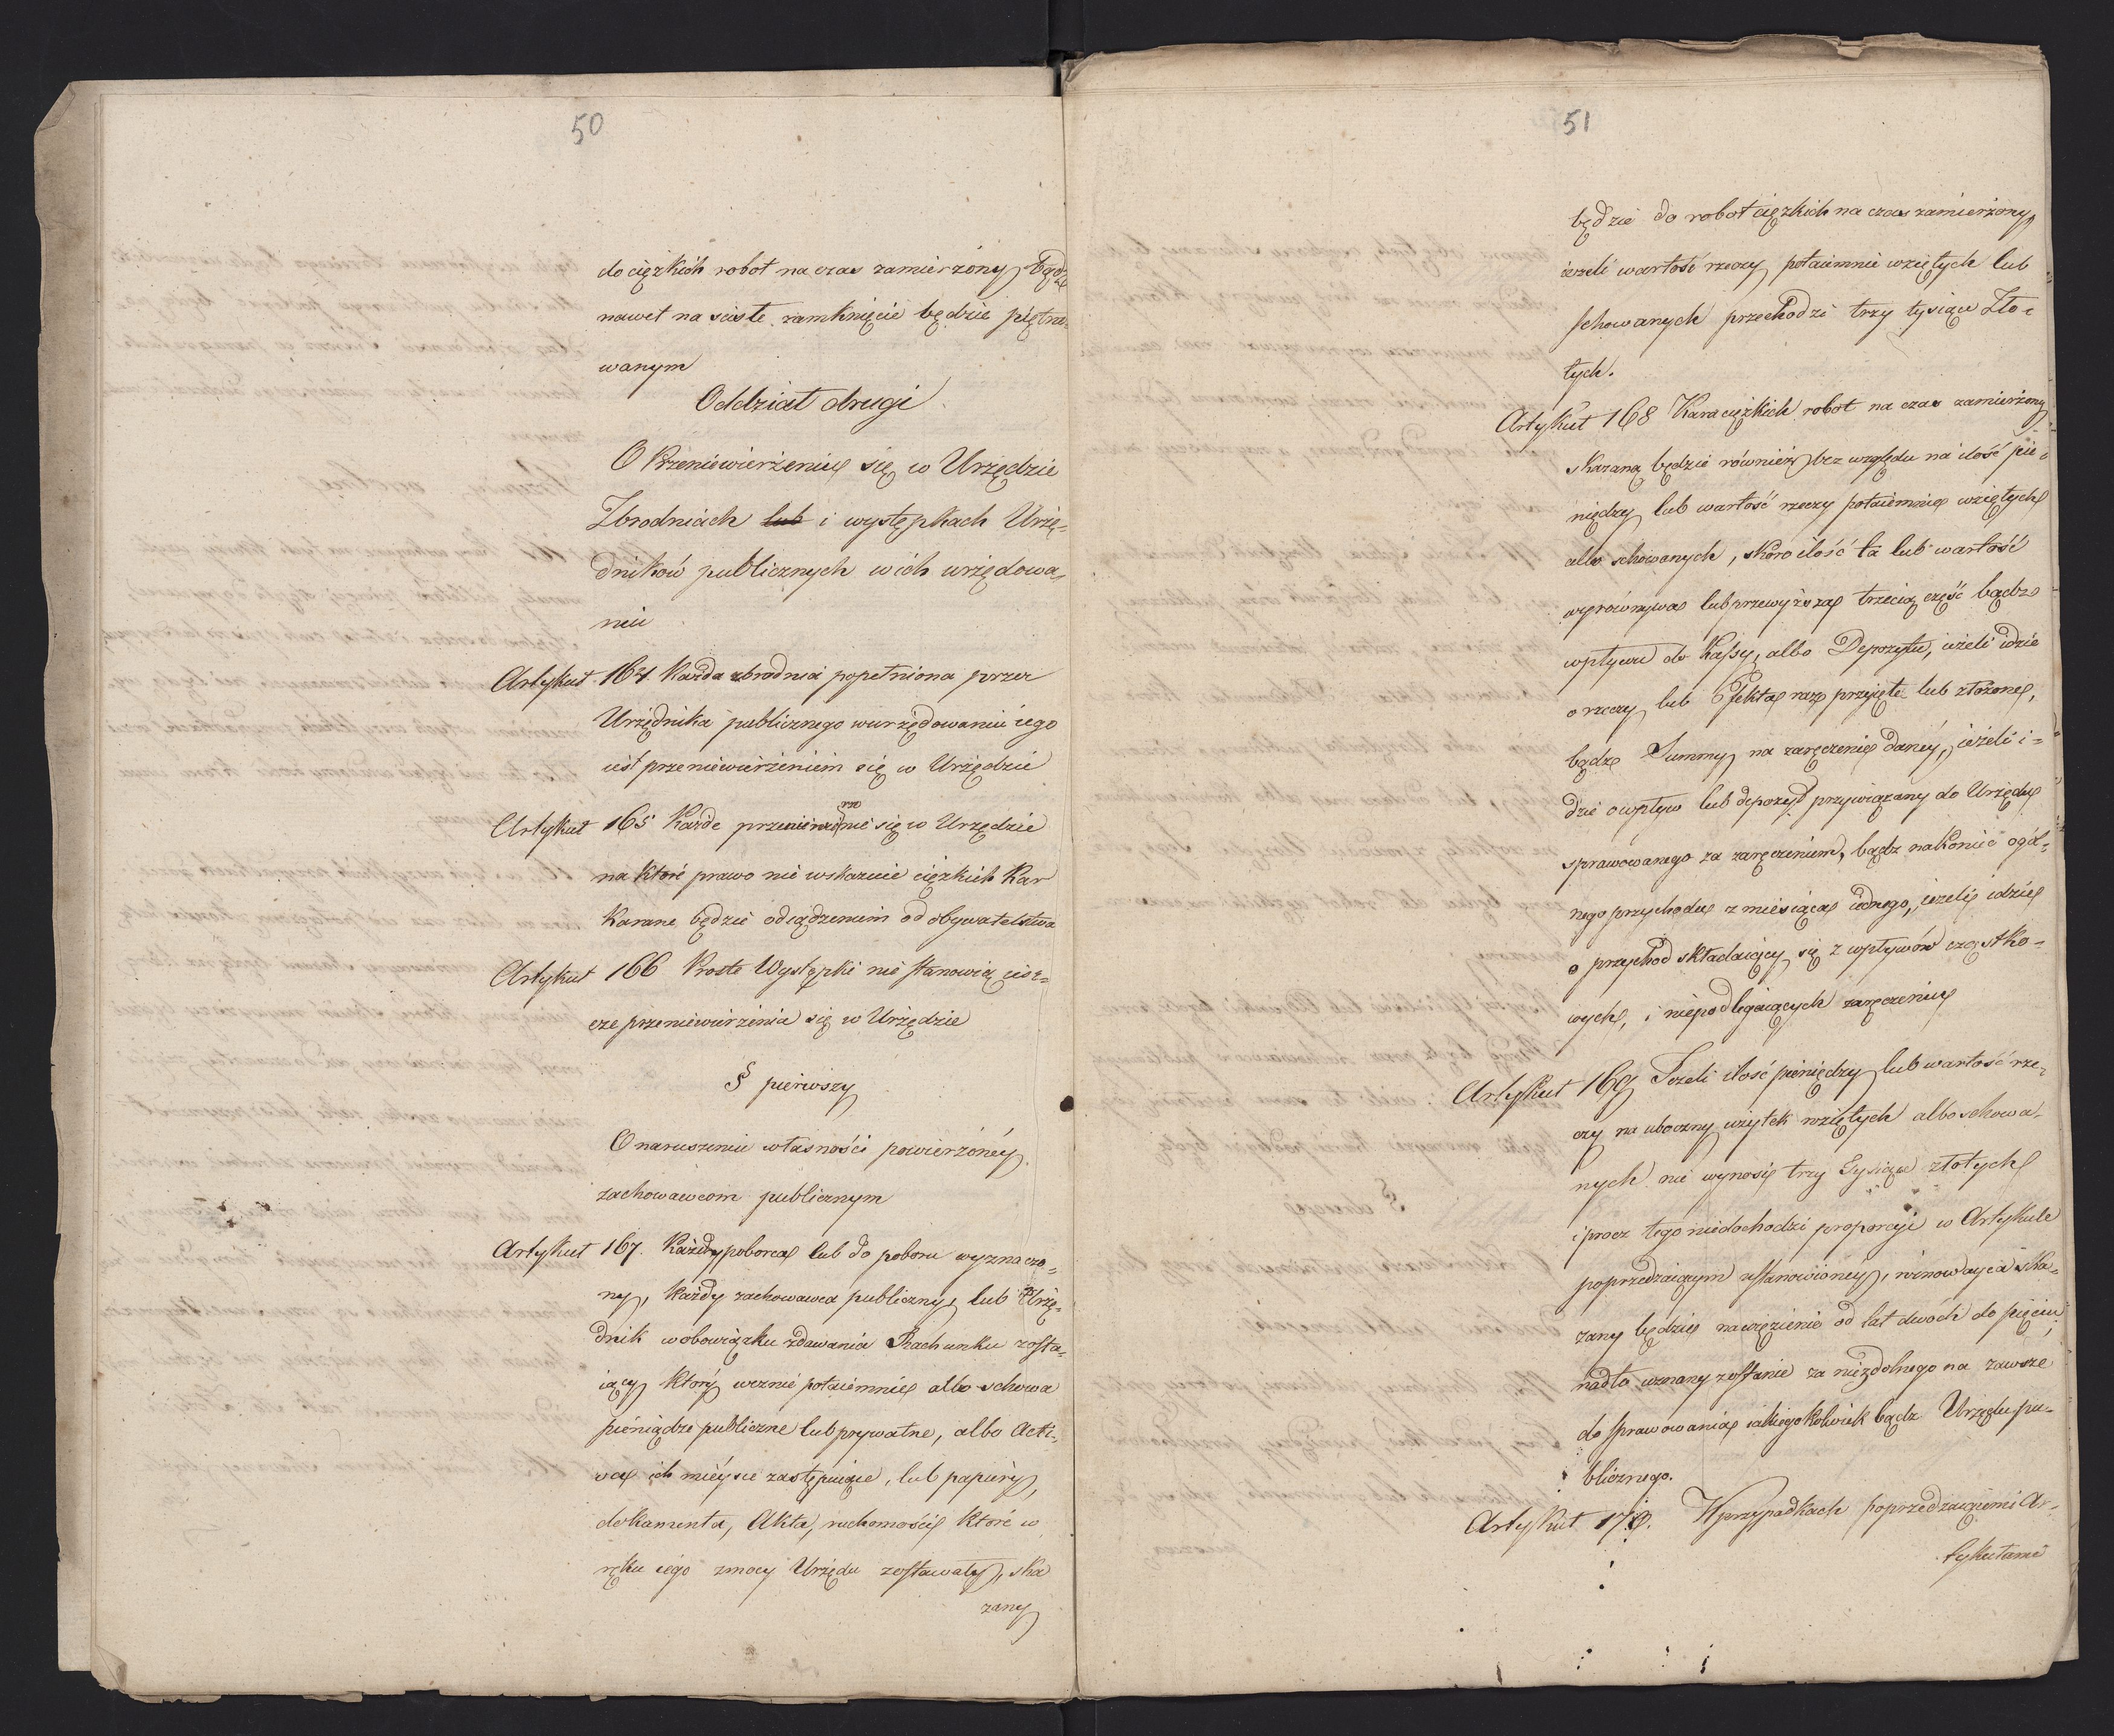 50
do ciężkich robot na czas zamierzony, bądź
nawet na scisłe zamknięcie będzie piętno-
wanym
Oddział drugi
O Przeniewierzeniu się w Urzędzie
Zbrodniach lub i występkach Urzę-
dników publicznych w ich urzędowa-
niu
Artykuł 164 Każda zbrodnia popełniona przez
Urzędnika publicznego w urzędowaniu iego
iest przeniewierzeniem się w Urzędzie
Artykuł 165 Każde przeniewierzenie się w Urzędzie
na które prawo nie wskazuie ciężkich Kar
Karane będzie odsądzeniem od obywatelstwa
Artykuł 166 Proste Występki nie stanowią iesz-
cze przeniewierzenia się w Urzędzie
§ pierwszy
O naruszeniu własności powierzoney
zachowawcom publicznym
Artykuł 167. Każdy poborca lub do poboru wyznaczo-
ny, Każdy zachowawca publiczny, lub Urzę-
dnik w obowiązku zdawania Rachunku zosta-
iący który weźmie potaiemnie albo schowa
pieniądze publiczne lub prywatne, albo Acti-
va ich mieysce zastępuiące, lub papiery,
dokumenta, Akta, ruchomości które w
ręku iego z mocy Urzędu zostawały, ska
zany
51
będzie do robot ciężkich na czas zamierzony,
ieżeli wartość rzeczy potaiemnie wziętych lub
schowanych przechodzi trzy tysiące Zło-
tych.
Artykuł 168 Kara ciężkich robot na czas zamierzony
skazaną będzie również bez względu na ilość pie-
niędzy lub wartość rzeczy potaiemnie wziętych
albo schowanych, skoro ilość ta lub wartość
wyrównywa lub przewyższa trzecią część bądź
wpływu do Kassy, albo Depozytu, ieżeli idzie
o rzeczy lub Effekta raz przyięte lub złożone,
bądź Summy na zaręczenie daney, ieżeli i-
dzie o wpływ lub depozyt przywiązany do Urzędu
sprawowanego za zaręczeniem, bądź nakoniec ogól-
nego przychodu z miesiąca iednego, ieżeli idzie
o przychod składaiący się z wpływów cząstko-
wych, i niepodlegaiących zaręczeniu
Artykuł 169 Jeżeli ilość pieniędzy lub wartość rze-
czy na uboczny użytek wziętych albo schowa-
nych nie wynosi trzy Tysiące złotych
i prócz tego niedochodzi proporcyi w Artykule
poprzedzaiącym ustanowioney, winowayca ska-
zany będzie na więzienie od lat dwóch do pięciu,
nadto uznany zostanie za niezdolnego na zawsze
do sprawowania iakiegokolwiek bądź Urzędu pu-
blicznego.
Artykuł 170. W przypadkach poprzedzaiącemi Ar-
tykułami